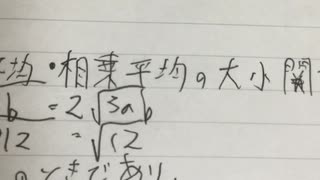 均・相乗平均の大小関
b = 2√3a b
12 = √12
のときであり